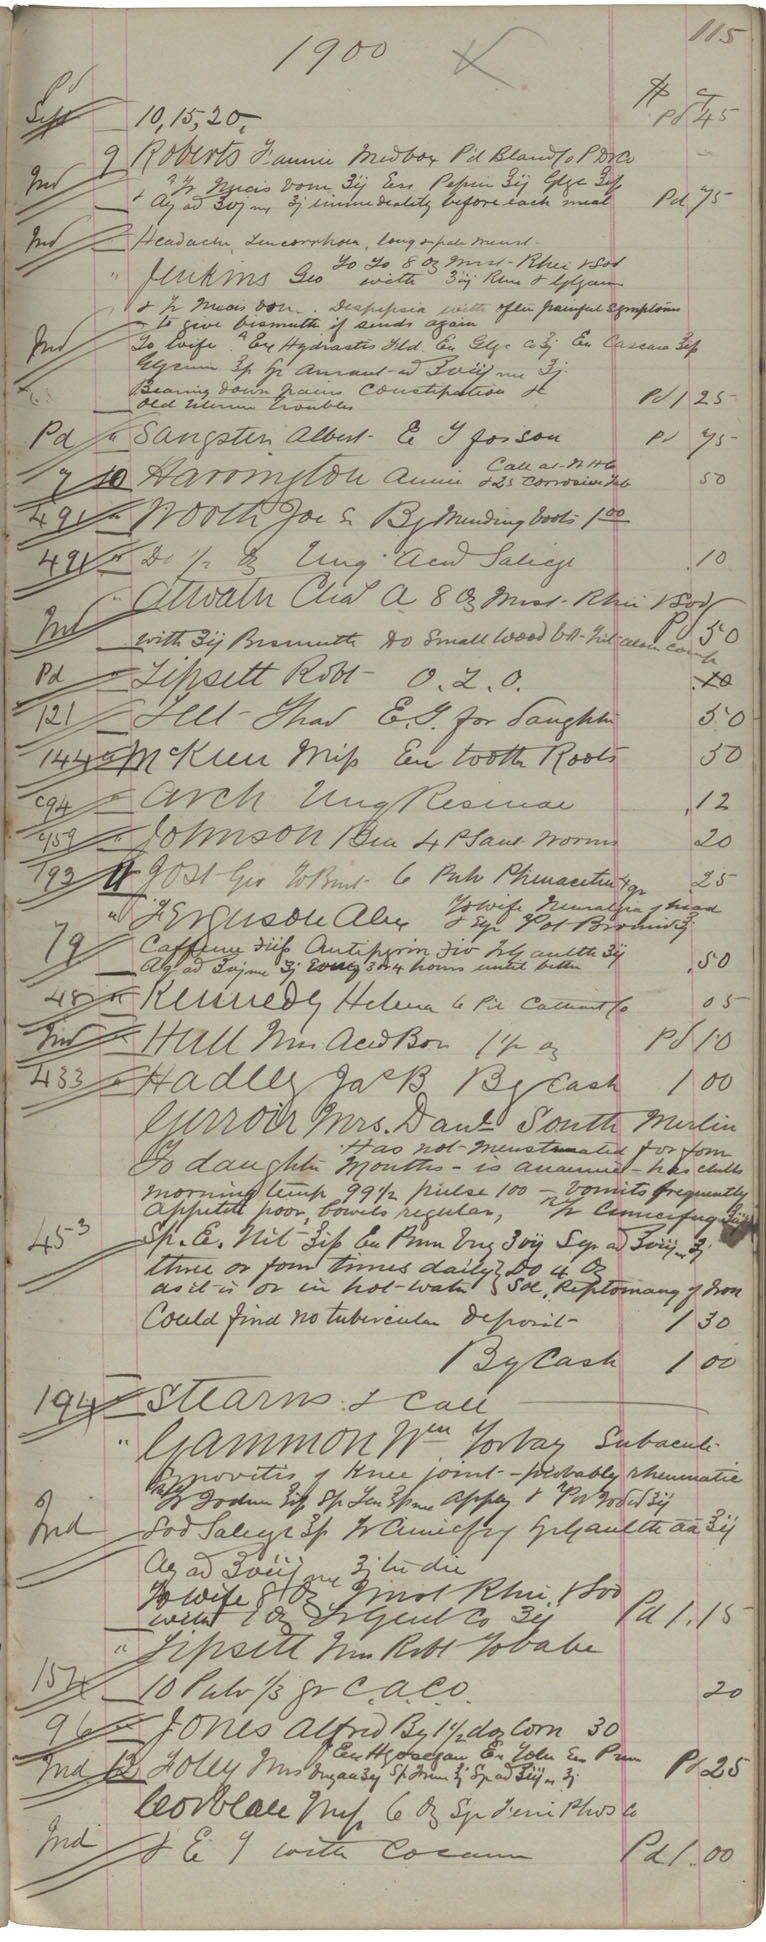 115
1900
Pd
Sept 10, 15, 20, Pd 45
9 Roberts Fannie Medbox Pil Blaud Co P D & Co
Ind Tr Nucis Vom ʒij Ess Pepsin ʒij Glyc
Aq ad ʒvj ʒj immediately before each meal Pd 75
Ind Headache, Leucorrhoea, long & pale menst
" Jenkins Geo 8 oz Mist Rhei & Sod
with ʒij Rhei & Glycerin
& Tr Nucis Vom. Dyspepsia with often painful symptoms
to give bismuth if sends again
Ind To wife Ex Hydrastis Fld. Ex Glyc ʒj Ex Cascara
Glycerin Tr Aurant ad ʒviij ʒj
Bearing down pains Constipation &
old Uterine troubles Pd 1 25
Pd " Sangster Albert E T for son Pd 75
7 10 Harrington Annie Call at
& 25 Corrosive Tab 50
491 " Worth Joe S By Mending boots 1 00
491 " Do ½ oz Ung Acid Salicyl .10
" Atwater Chas A 8 oz Mist Rhei & Sod
Ind with ʒij Bismuth Do Small wood bot Pd 50
Pd " Lipsett Robt O. L. O. .10
121 " Thad E. T. for daughter 50
144 " McKeen Miss Ex tooth Roots 50
494 " Arch Ung Resinae .12
459 " Johnson Ben 4 P Sant Worms 20
193 11 Jost Geo 6 Pulv Phenacetin 4 gr .25
" Ferguson Alex To wife Neuralgia of head
79 Pot Bromid ʒj
Caffeine Antipyrin Gaulth ʒij
Aq ad ʒvj ʒj Every 3 or 4 hours until better .50
48 " Kennedy Helena 6 Pil Cathart Co 05
Ind " Hull Mrs Acid Bor 1½ oz Pd 10
433 " Hadley Jas B By Cash 1 00
Gerroir Mrs. Danl South Merlin
To daughter Has not menstruated for four
Months - is anaemic - has chills
morning temp 99½ pulse 100 - vomits frequently
Appetite poor, bowels regular, Tr Cimicifug ʒij
453 Sp. E. Nit Ex Prun Virg ʒvij Syr ad ʒviij ʒj
three or four times daily Do 4 oz
as it is or in hot water Sol. Peptomang of Iron
Could find no tubercular deposit 1 30
By Cash 1 00
194 " Stearns & Call
" Gammon Wm Torbay Subacute
Synovitis of Knee joint - probably rheumatic
Tr Iodin Apply & Pot Iodid ʒij
Ind Sod Salicyl Tr Cimicifug Gaulth aa ʒij
Aq ad ʒviij ʒj ter die
To wife 8 oz Mist Rhei & Sod
with 1 oz Tr Gent Co ʒij Pd 1.15
" Lipsett Mrs Robt To babe
154 10 Pulv ⅓ gr C. A. C. O. 20
96 " Jones Alfred By 1½ doz Corn 30
Ind 12 Foley Mrs Ex Hyoscyam Ex Ex Prun
Virg aa ʒij ʒj Syr ad ʒij ʒj Pd 25
Miss 6 oz Syr Ferri Phos Co
Ind & E T with Cocaine Pd 1.00